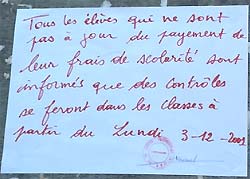 Tous les élèves qui ne sont
pas à jour du payement de
leur frais de scolarité sont
informés que des contrôles
se feront dans les classes à
partir du Lundi 3-12-2001